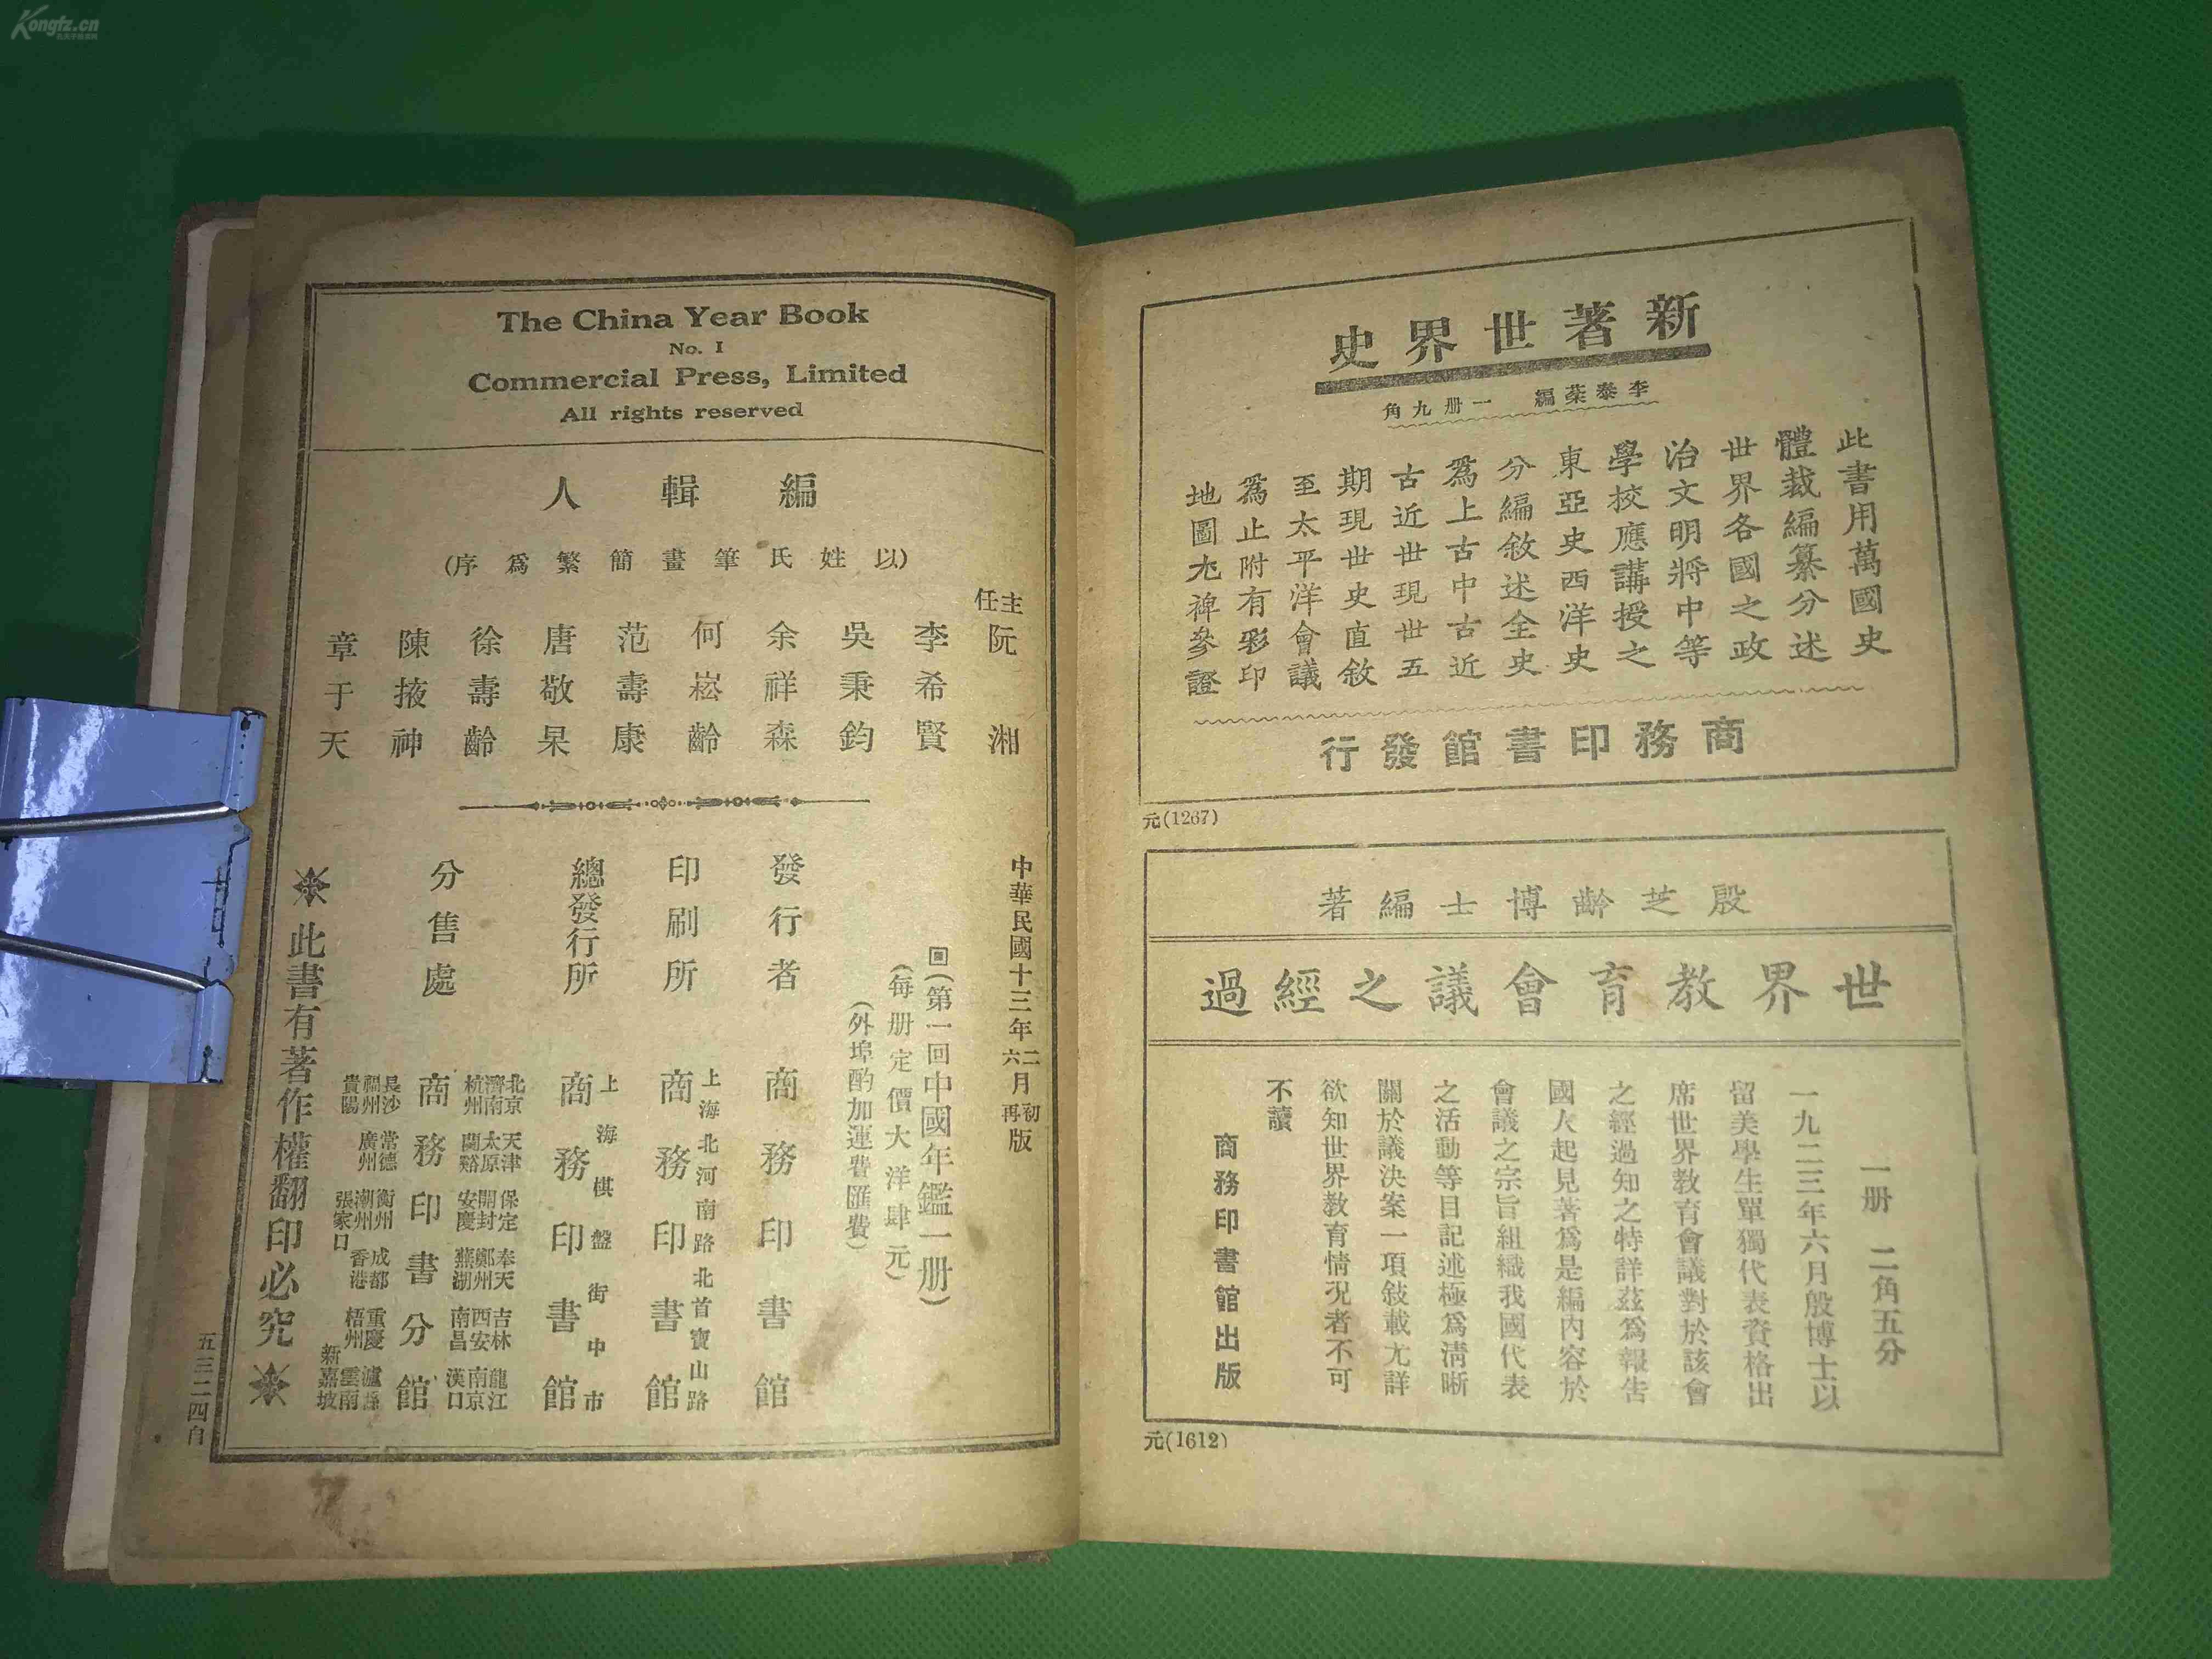 Kongfz.cn
新著世界史
李泰棻編　一册九角
此書用萬國史
體裁編纂分述
世界各國之政
治文明將中等
學校應講授之
東亞史西洋史
分編敘述全史
爲上古中古近
古近世現世五
期現世史直敘
至太平洋會議
爲止附有彩印
地圖尤裨參證
商務印書館發行
元(1267)
殷芝齡博士編著
世界教育會議之經過
一册　二角五分
一九二三年六月殷博士以
留美學生單獨代表資格出
席世界教育會議對於該會
之經過知之特詳茲爲報告
國人起見著爲是編內容於
會議之宗旨組織我國代表
之活動等目記述極爲清晰
關於議決案一項敍載尤詳
欲知世界教育情況者不可
不讀
商務印書館出版
元(1612)
The China Year Book
No. I
Commercial Press, Limited
All rights reserved
編輯人
(以姓氏筆畫簡繁爲序)
主任
阮湘
李希賢
吳秉鈞
余祥森
何崧齡
范壽康
唐敬杲
徐壽齡
陳掖神
章于天
中華民國十三年二月初版
六再
(第一回中國年鑑一册)
(每册定價大洋肆元)
(外埠酌加運費匯費)
發行者　商務印書館
印刷所　商務印書館
上海北河南路北首寶山路
總發行所　商務印書館
上海棋盤街中市
分售處　商務印書分館
北京天津保定奉天吉林龍江
濟南太原開封鄭州西安南京
杭州蘭谿安慶蕪湖南昌漢口
長沙常德衡州成都重慶瀘縣
福州廣州潮州香港梧州雲南
貴陽　張家口　新嘉坡
此書有著作權翻印必究
五三二四自